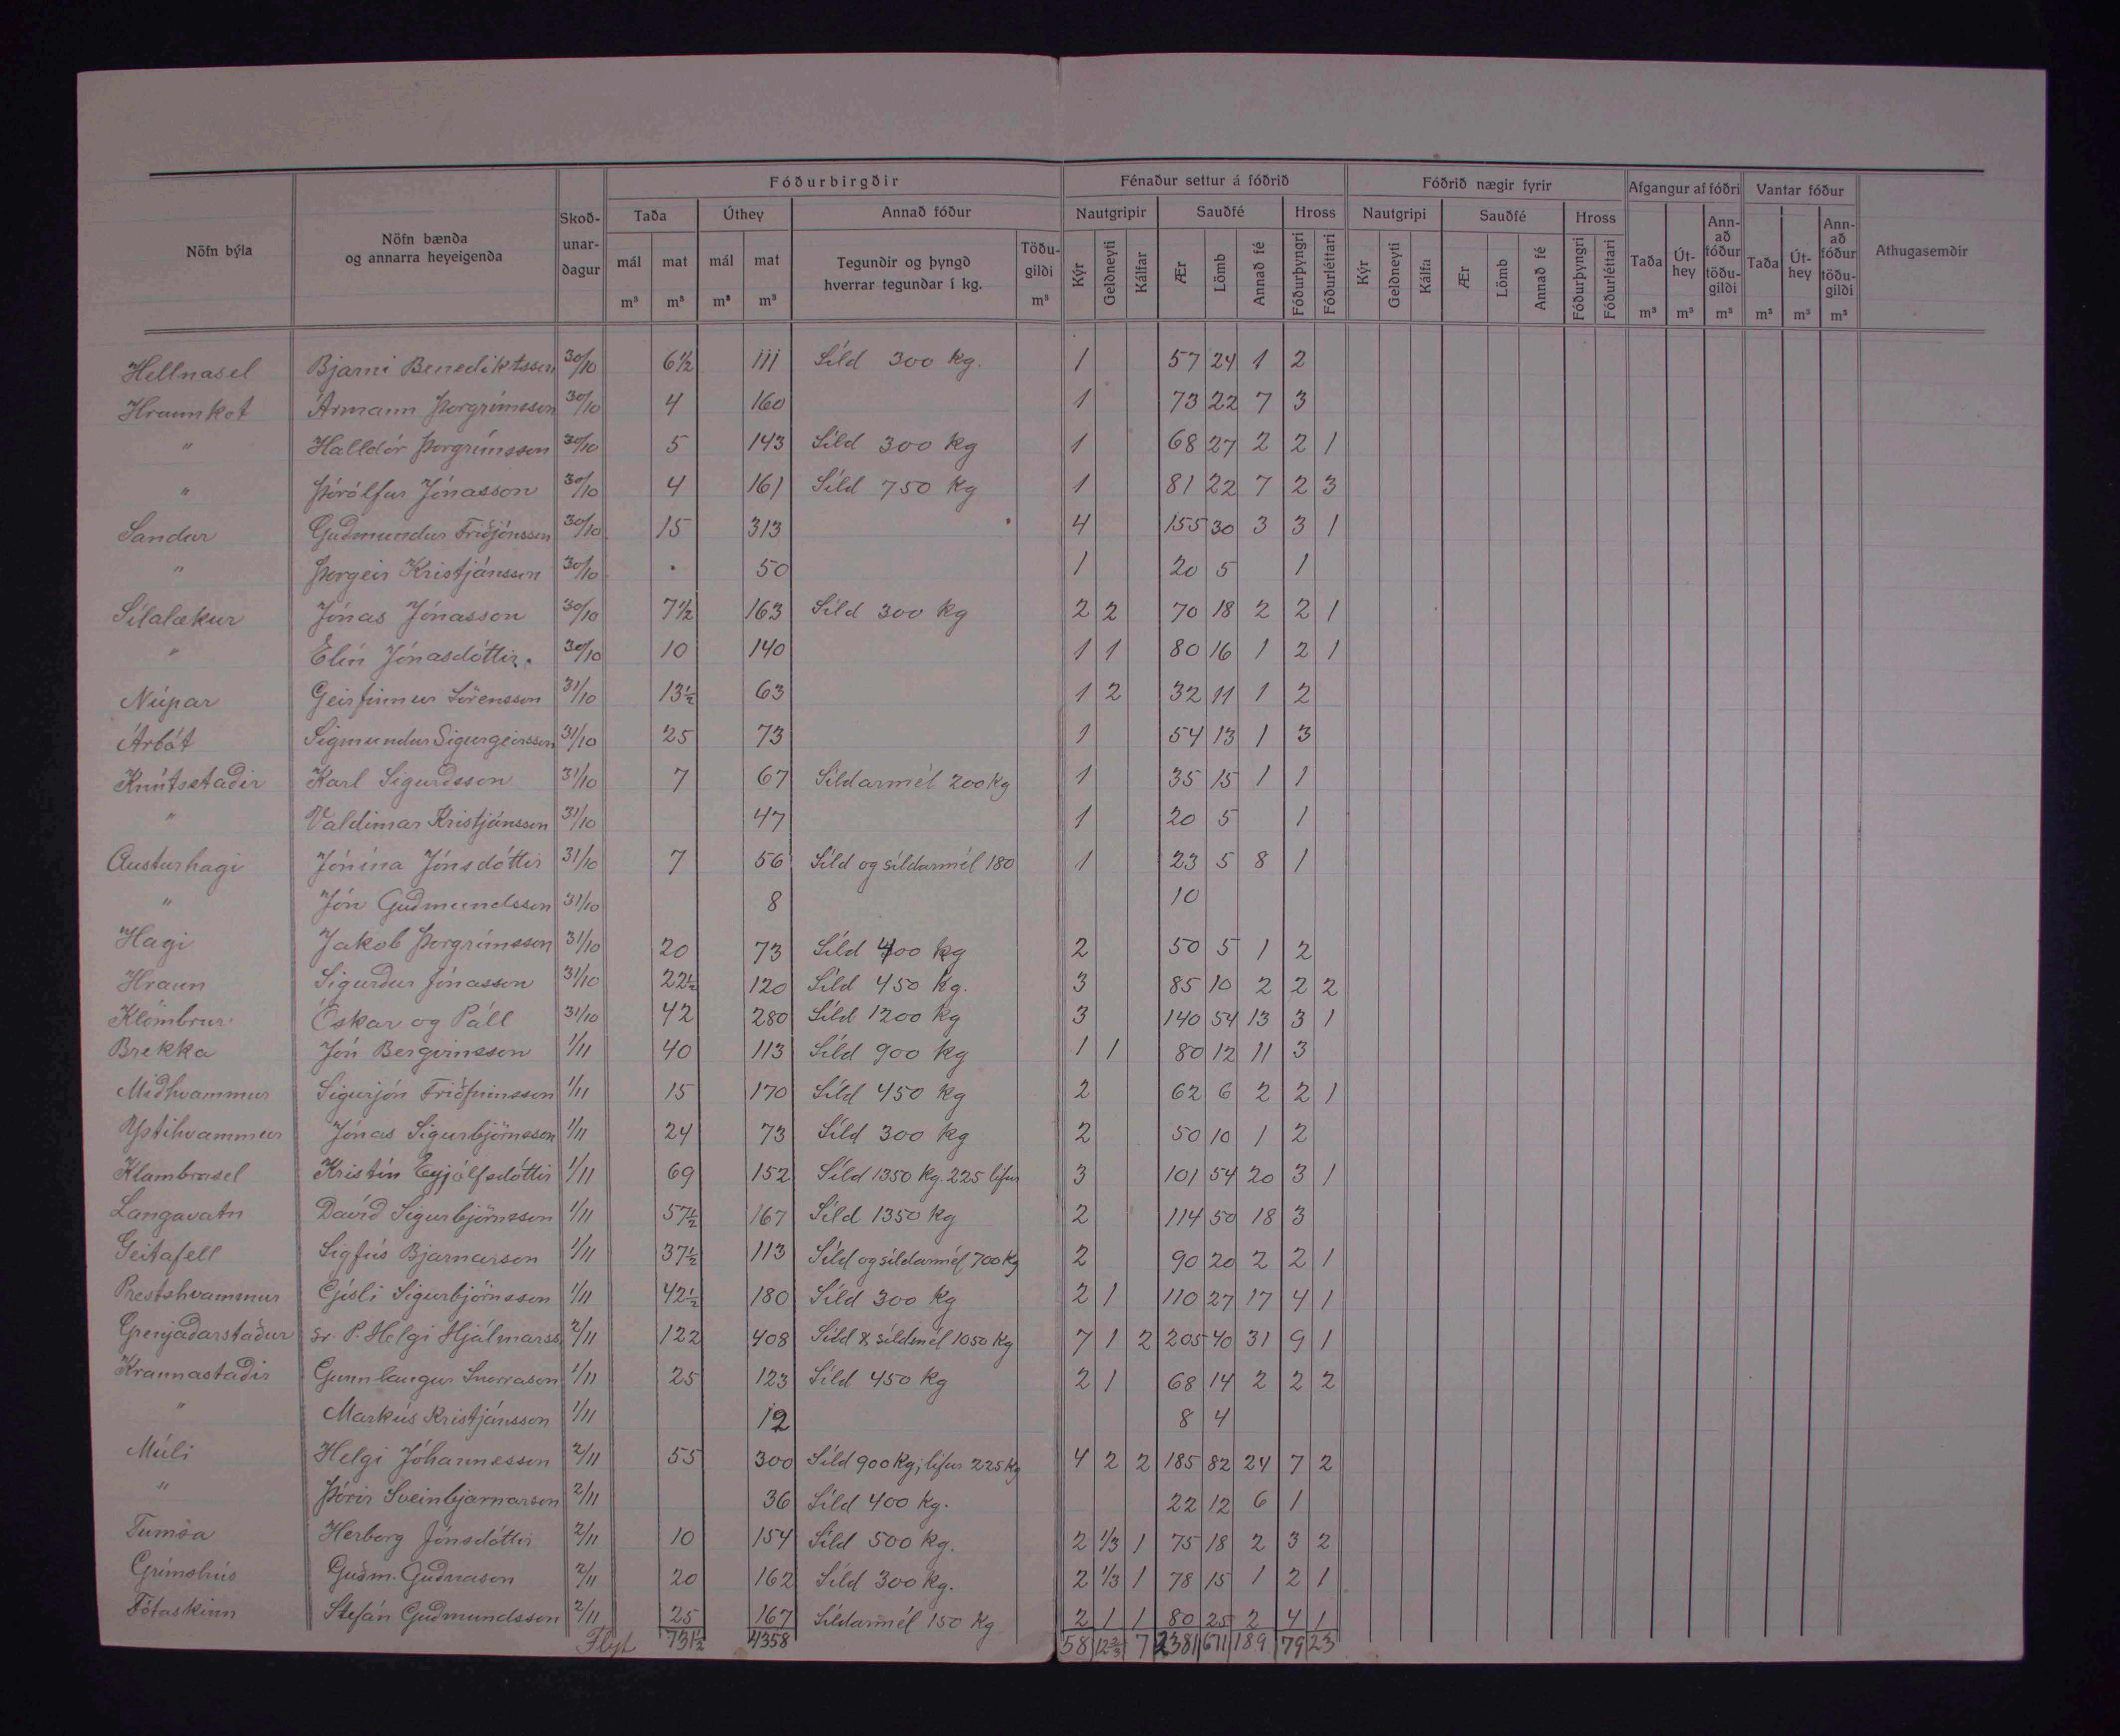 Fóðurbirgðir Fénaður settur á fóðrið Fóðrið nægir fyrir Afgangur af fóðri Vantar fóður
Nöfn býla Nöfn bænda og annarra heyeigenda Skoðunardagur Taða Úthey Annað fóður Nautgripir Sauðfé Hross Nautgripi Sauðfé Hross Taða Úthey Annað fóður töðugildi Taða Úthey Annað fóður töðugildi Athugasemðir
mál mat mál mat Tegundir og þyngð hverrar tegundar í kg. Töðugildi Kýr Geldneyti Kálfar Ær Lömb Annað fé Fóðurþyngri Fóðurléttari Kýr Geldneyti Kálfa Ær Lömb Annað fé Fóðurþyngri Fóðurléttari
m³ m³ m³ m³ m³ m³ m³ m³ m³ m³ m³
Hellnasel Bjarni Benediktsson 30/10 6½ 111 Síld 300 kg. 1 57 24 1 2
Hraunkot Ármann Þorgrímsson 30/10 4 160 1 73 22 7 3
" Halldór Þorgrímsson 30/10 5 143 Síld 300 kg 1 68 27 2 2 1
" Þórólfur Jónasson 30/10 4 161 Síld 750 kg 1 81 22 7 2 3
Sandur Guðmundur Friðjónsson 30/10 15 313 4 155 30 3 3 1
" Þorgeir Kristjánsson 30/10 50 1 20 5 1
Sílalækur Jónas Jónasson 30/10 7½ 163 Síld 300 kg 2 2 70 18 2 2 1
" Elín Jónasdóttir. 30/10 10 140 1 1 80 16 1 2 1
Núpar Geirfinnur Sörensson 31/10 13½ 63 1 2 32 11 1 2
Árbót Sigmundur Sigurgeirsson 31/10 25 73 1 54 13 1 3
Knútsstaðir Karl Sigurðsson 31/10 7 67 Síldarmél 200 kg 1 35 15 1 1
" Valdimar Kristjánsson 31/10 47 1 20 5 1
Austurhagi Jónína Jónsdóttir 31/10 7 56 Síld og síldarmél 180 1 23 5 8 1
" Jón Guðmundsson 31/10 8 10
Hagi Jakob Þorgrímsson 31/10 20 73 Síld 400 kg 2 50 5 1 2
Hraun Sigurður Jónasson 31/10 22½ 120 Síld 450 kg. 3 85 10 2 2 2
Klömbrur Óskar og Páll 31/10 42 280 Síld 1200 kg 3 140 54 13 3 1
Brekka Jón Bergvinsson 1/11 40 113 Síld 900 kg 1 1 80 12 11 3
Miðhvammur Sigurjón Friðfinnsson 1/11 15 170 Síld 450 kg 2 62 6 2 2 1
Ystihvammur Jónas Sigurbjörnsson 1/11 24 73 Síld 300 kg 2 50 10 1 2
Klambrasel Kristín Eyjólfsdóttir 1/11 69 152 Síld 1350 kg. 225 lifur 3 101 54 20 3 1
Langavatn Davíð Sigurbjörnsson 1/11 57½ 167 Síld 1350 kg 2 114 50 18 3
Geitafell Sigfús Bjarnarson 1/11 37½ 113 Síld og síldarmél 700 kg 2 90 20 2 2 1
Prestshvammur Gísli Sigurbjörnsson 1/11 42½ 180 Síld 300 kg 2 1 110 27 17 4 1
Grenjaðarstaður sr. P. Helgi Hjálmarss. 2/11 122 408 Síld & síldmél 1050 kg 7 1 2 205 40 31 9 1
Kraunastaðir Gunnlaugur Snorrason 1/11 25 123 Síld 450 kg 2 1 68 14 2 2 2
" Markús Kristjánsson 1/11 12 8 4
Múli Helgi Jóhannesson 2/11 55 300 Síld 900 kg; lifur 225 kg 4 2 2 185 82 24 7 2
" Þórir Sveinbjarnarson 2/11 36 Síld 400 kg. 22 12 6 1
Tumsa Herborg Jónsdóttir 2/11 10 154 Síld 500 kg. 2 1/3 1 75 18 2 3 2
Grímshús Guðm. Guðnason 2/11 20 162 Síld 300 kg. 2 1/3 1 78 15 1 2 1
Fótaskinn Stefán Guðmundsson 2/11 25 167 Síldarmél 150 kg 2 1 1 80 25 2 4 1
Flyt 731½ 4358 58 12⅔ 7 2381 671 189 79 23